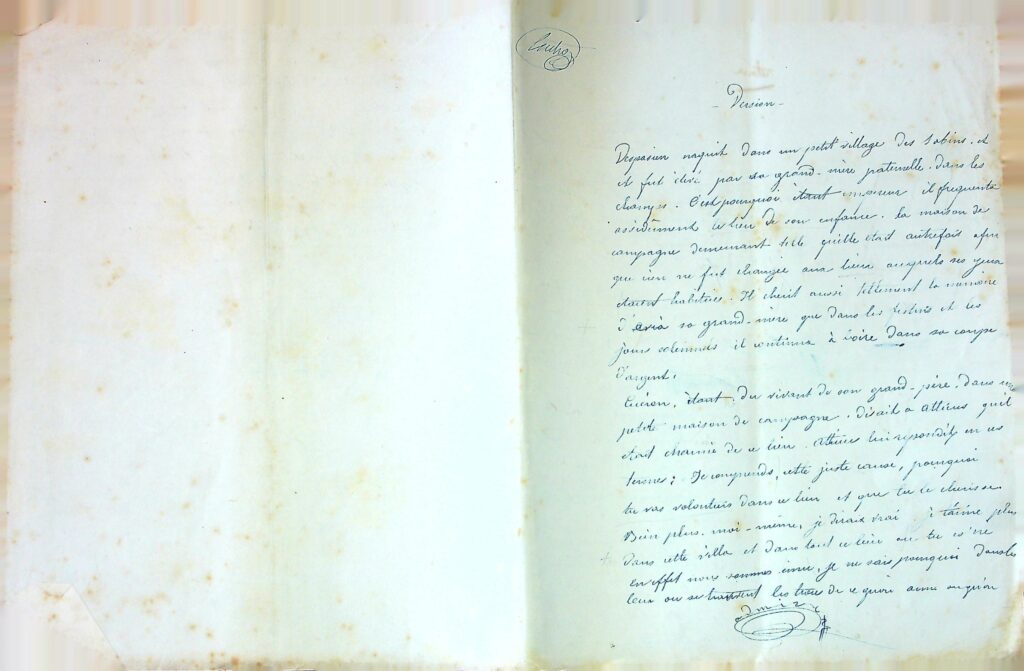 - Version -
Vespasien naquit dans un petit village des Sabins. et
et fut élevé par sa grand-mère paternelle. dans les
champs. C'est pourquoi étant empereur il frequenta
assidûment le lieu de son enfance. la maison de
campagne demeurant telle qu'elle était autrefois afin
que rien ne fut changée aux lieux auxquels ses yeux
étaient habitués. Il cherit aussi tellement la mémoire
de sa grand-mère que dans les festins et les
jours solennels il continua à boire dans sa coupe
d'argent.
Cicéron, étant, du vivant de son grand-père, dans une
petite maison de campagne. disait a Atticus qu'il
était charmé de ce lieu. Atticus lui répondit en ces
termes; Je comprends, cette juste cause, pourquoi
tu vas volontiers dans ce lieu et que tu le cherisse.
Bien plus, moi-même, je dirais vrai je t'aime plus
dans cette villa et dans tout ce lieu où tu es né
en effet nous sommes emu, je ne sais pourquoi dans les
lieux ou se trouvent les de ce qu'on aime ou qu'on
admire